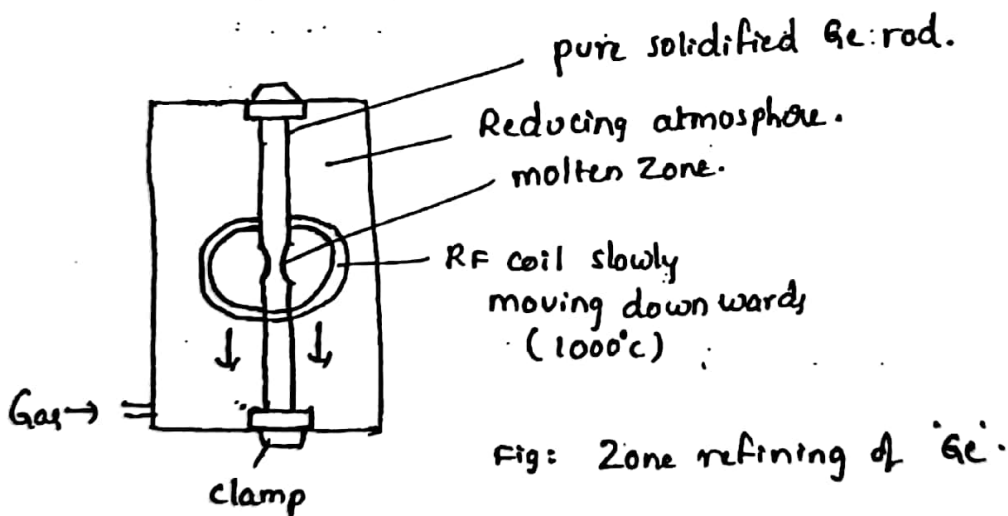 pure solidified Ge: rod.
Reducing atmosphere.
molten Zone.
RF coil slowly
moving down wards
(1000°c)
Gas→
clamp
Fig: Zone refining of 'Ge'.